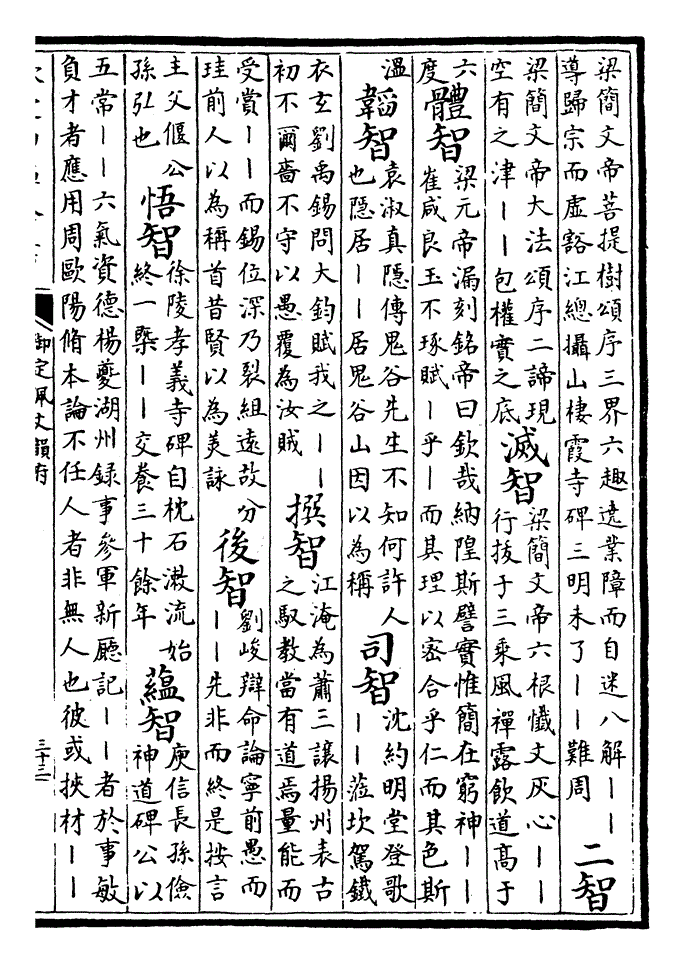 梁簡文帝菩提樹頌序三界六趣遶業障而自迷八解——
導歸宗而虛豁江總攝山棲霞寺碑三明未了——難周
二智
梁簡文帝大法頌序二諦現
空有之津——包權實之底
滅智
梁簡文帝六根懺文灰心——
行拔于三乘風禪露飲道高于
六
度
體智
梁元帝漏刻銘帝曰欽哉納隍斯譬實惟簡在窮神——
崔咸良玉不琢賦—乎—而其理以密合乎仁而其色斯
溫
韞智
袁淑真隱傳鬼谷先生不知何許人
也隱居——居鬼谷山因以為稱
司智
沈約明堂登歌
——蒞坎駕鐵
衣玄劉禹錫問大鈞賦我之——
初不爾嗇不守以愚覆為汝賊
撰智
江淹為蕭三讓揚州表古
之馭教當有道焉量能而
受賞——而錫位深乃裂組遠故分
珪前人以為稱首昔賢以為美詠
後智
劉峻辯命論寧前愚而
——先非而終是按言
主父偃公
孫弘也
悟智
徐陵孝義寺碑自枕石漱流始
終一槩——交養三十餘年
蘊智
庾信長孫儉
神道碑公以
五常——六氣資德楊夔湖州錄事參軍新廳記——者於事敏
負才者應用周歐陽脩本論不任人者非無人也彼或挾材——
御定佩文韻府
三十三